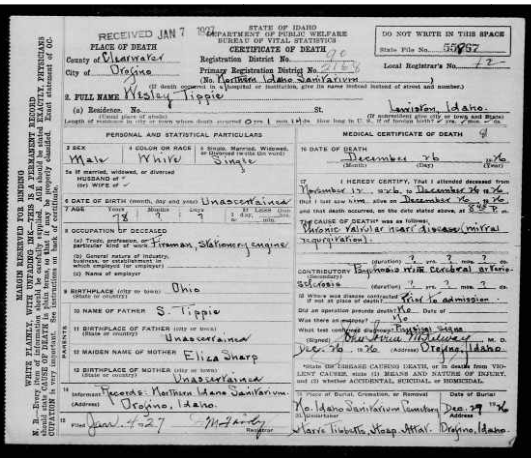 RECEIVED JAN 7 1927
STATE OF IDAHO
DEPARTMENT OF PUBLIC WELFARE
BUREAU OF VITAL STATISTICS
CERTIFICATE OF DEATH
DO NOT WRITE IN THIS SPACE
State File No. 55867
Local Registrar's No. 12
PLACE OF DEATH
County of Clearwater
City of Orofino
Registration District No. 90
Primary Registration District No. 2168
(No. Northern Idaho Sanitarium)
(If death occurred in a hospital or institution, give its name instead of street and number.)
2. FULL NAME Wesley Tippie
(a) Residence. No. St. Lewiston, Idaho.
(Usual place of abode)
PERSONAL AND STATISTICAL PARTICULARS
3 SEX
Male
4 COLOR OR RACE
White
5 Single, Married, Widowed,
Single
5a If married, widowed, or divorced
HUSBAND of
(or) WIFE of
6 DATE OF BIRTH (month, day and year) Unascertained
7 AGE Years Months Days
78 ? ?
8 OCCUPATION OF DECEASED
(a) Trade, profession, or
Fireman, Stationery engine
(b) General nature of industry,
business, or establishment in
which employed (or employer)
(c) Name of employer
9 BIRTHPLACE (city or town) Ohio
(State or country)
PARENTS
10 NAME OF FATHER S. Tippie
11 BIRTHPLACE OF FATHER (city or town)
(State or country) Unascertained
12 MAIDEN NAME OF MOTHER Eliza Sharp
13 BIRTHPLACE OF MOTHER (city or town)
(State or country) Unascertained
14 Informant Records: Northern Idaho Sanitarium
(Address) Orofino, Idaho.
15 Filed Jan. 4-27
Registrar
MEDICAL CERTIFICATE OF DEATH
16 DATE OF DEATH
December 26 1926
(Month) (Day) (Year)
17 I HEREBY CERTIFY, That I attended deceased from
November 12 1926, to December 26 1926
that I last saw him alive on December 26 1926
and that death occurred, on the date stated above, at
The CAUSE OF DEATH was as follows:
Chronic valvular heart disease (mitral
regurgitation).
(duration) ? yrs. ? mos. ? ds.
CONTRIBUTORY Psychosis with cerebral arterio-
sclerosis
(duration) ? yrs. ? mos. ? ds.
18 Where was disease contracted
if not at place of death? Prior to admission
Did an operation precede death? No
Was there an autopsy? No
What test confirmed diagnosis? Physical signs
(Signed) M. D.
Dec. 26, 1926 (Address) Orofino, Idaho
*State the DISEASE CAUSING DEATH, or in deaths from VIOLENT CAUSE, state (1) MEANS AND NATURE OF INJURY,
and (2) whether ACCIDENTAL, SUICIDAL, or HOMICIDAL.
19 Place of Burial, Cremation, or Removal
Date of Burial
No. Idaho Sanitarium Cemetery Dec. 29 1926
Undertaker
(Address)
Tibbetts, Hosp. Attdt. Orofino, Idaho.
MARGIN RESERVED FOR BINDING
WRITE PLAINLY, WITH UNFADING INK—THIS IS A PERMANENT RECORD
N. B.—Every item of information should be carefully supplied. AGE should be stated EXACTLY. PHYSICIANS
should state CAUSE OF DEATH in plain terms, so that it may be properly classified. Exact statement of OCCUPATION is very important. See instructions on back of certificate.